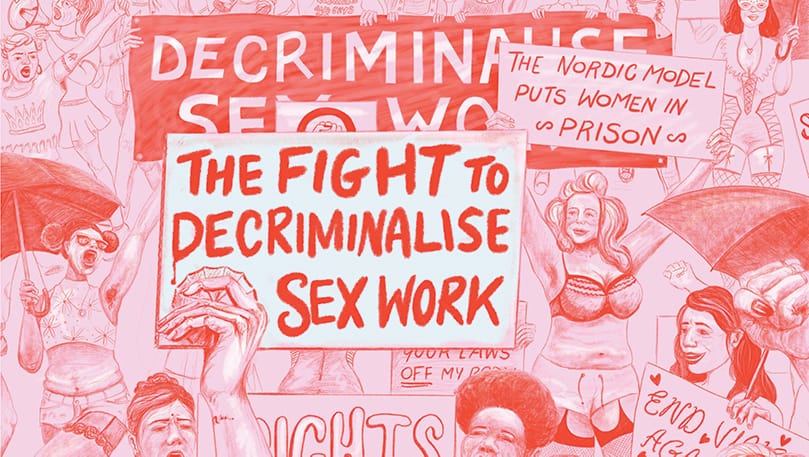 DECRIMINALISE
SEX WO
THE NORDIC MODEL
PUTS WOMEN IN
~ PRISON ~
THE FIGHT TO
DECRIMINALISE
SEX WORK
YOUR LAWS
OFF MY BODY
RIGHTS
END